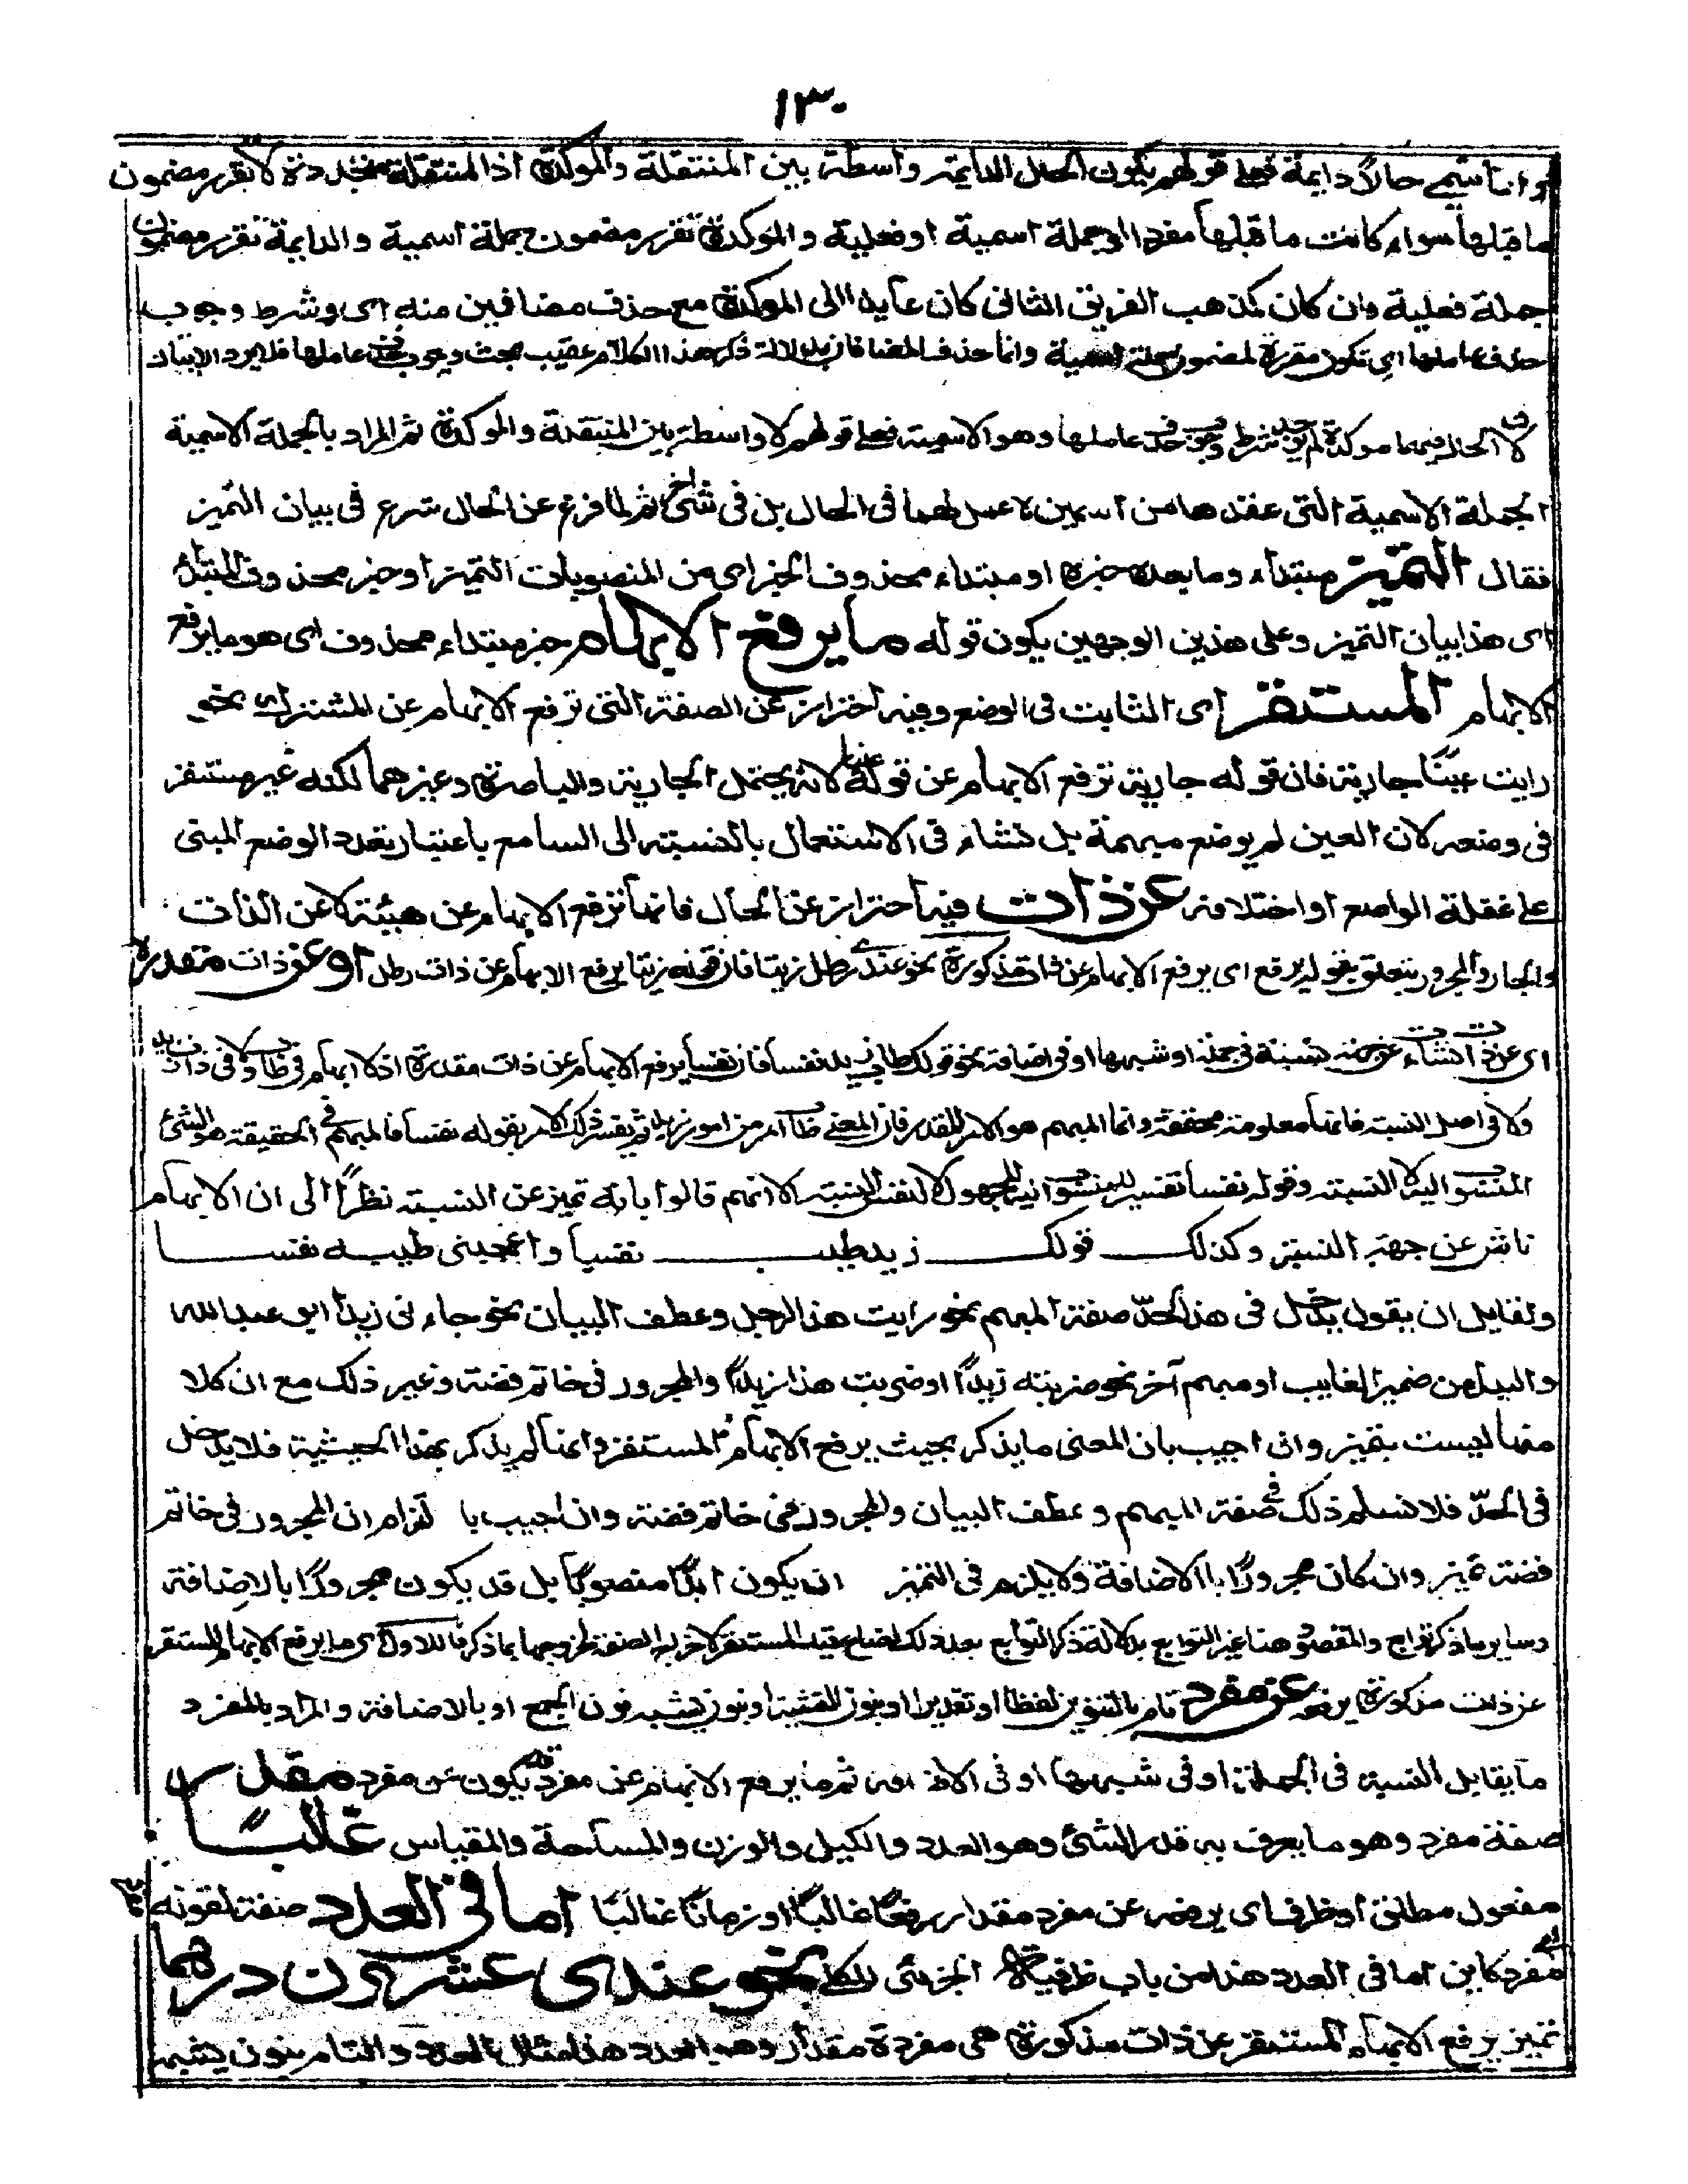 ١٣٠
وانما تسمى حالا دايمة فعلى قولهم يكون الحال الدايمة واسطة بين المنتقلة والموكدة اذ المنتقلة متجددة لا تقرر مضمون
ما قبلها سواء كانت ما قبلها مفردا او جملة اسمية او فعلية والموكدة تقرر مضمون جملة اسمية والدايمة تقرر مضمون
جملة فعلية وان كان مذهب الفريق الثانى كان عايدا الى الموكدة مع حذف مضافين منه اى وشرط وجوب
حذف عاملها اى تكون مقررة لمضمون جملة اسمية وانما حذف المضافان بدلالة ذكر هذا الكلام عقيب بحث وجوب حذف عاملها فلا يرد الاتيان
لان الحال فيهما موكدة لم يوجد شرط وجوب حذف عاملها وهو الاسمية فعلى قولهم لا واسطة بين المنتقلة والموكدة ثم المراد بالجملة الاسمية
الجملة الاسمية التى عقدها من اسمين لا عمل لهما فى الحال بل فى شئ اخر ثم لما فرغ عن الحال شرع فى بيان التميز
فقال التميز مبتداء وما بعده خبره او مبتداء محذوف الخبر اى من المنصوبات التميز او خبر محذوف المبتدأ
اى هذا بيان التميز وعلى هذين الوجهين يكون قوله ما يرفع الابهام خبر مبتداء محذوف اى هو ما يرفع
الابهام المستقر اى الثابت فى الوضع وفيه احتراز عن الصفة التى ترفع الابهام عن المشترك نحو
رايت عينًا جارية فان قوله جارية ترفع الابهام عن قوله عينا لانه يحتمل الجارية والباصرة وغيرهما لكنه غير مستقر
فى وضعه لان العين لم يوضع مبهمة بل نشاء فى الاستعمال بالنسبة الى السامع باعتبار تعدد الوضع المبنى
على غفلة الواضع او اختلافه عن ذات فيه احتراز عن الحال فانها ترفع الابهام عن هيئة لا عن الذات
والجار والمجرور يتعلق بقوله يرفع اى يرفع الابهام عن ذات مذكورة نحو عندى رطل زيتا فان قوله زيتا يرفع الابهام عن ذات رطل او عن ذات مقدرة
اى عن ذات نشاءت عن نسبة فى جملة او شبهها او فى اضافة نحو قولك طاب زيد نفسا فان نفسا يرفع الابهام عن ذات مقدرة اذ لا ابهام فى طاب ولا فى ذات زيد
ولا فى اصل النسبة فانها معلومة محققة وانما المبهم هو الامر المقدر فان المعنى طاب امر من امور زيد ثم يفسر ذلك الامر بقوله نفسا فالمبهم فى الحقيقة هو الشئ
المنسوب اليه لا النسبة وقوله نفسا تفسير للمنسوب اليه المجهول لا لنفس النسبة الا انهم قالوا بانه تميز عن النسبة نظرًا الى ان الابهام
ناش عن جهة النسبة وكذلك قولك زيد طيب نفسا واعجبنى طيبه نفسا
ولقايل ان يقول يدخل فى هذا الحدّ صفة المبهم نحو رايت هذا الرجل وعطف البيان نحو جاءنى زيد ابو عبد الله
والبدل من ضمير الغايب او مبهم آخر نحو ضربته زيدًا او ضربت هذا زيدًا والمجرور فى خاتم فضة وغير ذلك مع ان كلا
منها ليست بتميز وان اجيب بان المعنى ما يذكر بحيث يرفع الابهام المستقر وانما لم يذكر بهذا الحيثية فلا يدخل
فى الحدّ فلا نسلم ذلك فى صفة المبهم وعطف البيان والمجرور فى خاتم فضة وان اجيب با لتزام ان المجرور فى خاتم
فضة تميز وان كان مجرورًا باالاضافة ولا يلزم فى التميز ان يكون ابدًا منصوبًا بل قد يكون مجرورًا بالاضافة
وساير ما ذكر تخراج والمقصود هنا غير التوابع بدلالة ذكر التوابع بعد ذلك لضاع قيد المستقر لاخراج الصفة لخروجها بما ذكر فالاول اى ما يرفع الابهام المستقر
عن ذات مذكورة يرفعه عن مفرد تام بالتنوين لفظا او تقديرا او بنون التثنية او بنون يشبه نون الجمع او بالاضافة والمراد بالمفرد
ما يقابل النسبة فى الجملة او فى شبهها او فى الاضافة ثم ما يرفع الابهام عن مفرد قد يكون عن مفرد مقدار
صفة مفرد وهو ما يعرف به قدر الشئ وهو العدد والكيل والوزن والمساحة والمقياس غالبًا
مفعول مطلق او ظرف اى يرفعه عن مفرد مقدار رفعًا غالبًا او زمانًا غالبًا اما فى العدد صفة لقوله
مفرد كاين اما فى العدد هذا من باب ظرفية الجزئى للكلى نحو عندى عشرون درهما
تميز يرفع الابهام المستقر عن ذات مذكورة هى مفردة مقدار وهو العدد هذا مثال العدد والتام بنون يشبه